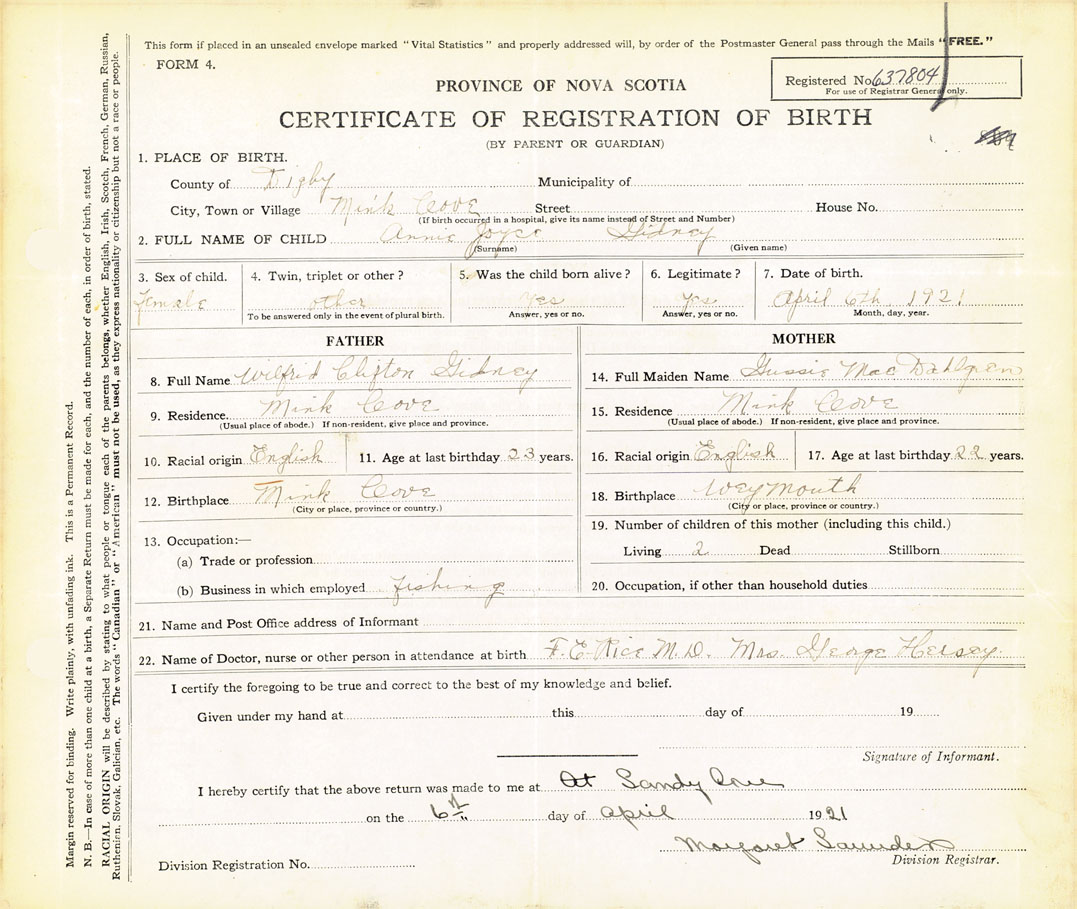 This form if placed in an unsealed envelope marked "Vital Statistics" and properly addressed will, by order of the Postmaster General pass through the Mails "FREE."
FORM 4.
Registered No. 637804
For use of Registrar General only.
PROVINCE OF NOVA SCOTIA
CERTIFICATE OF REGISTRATION OF BIRTH
(BY PARENT OR GUARDIAN)
1. PLACE OF BIRTH.
County of Digby Municipality of
City, Town or Village Mink Cove Street House No.
(If birth occurred in a hospital, give its name instead of Street and Number)
2. FULL NAME OF CHILD Annie Joyce Gidney
(Surname) (Given name)
3. Sex of child. 4. Twin, triplet or other? 5. Was the child born alive? 6. Legitimate? 7. Date of birth.
female other yes yes April 6th, 1921
To be answered only in the event of plural birth. Answer, yes or no. Answer, yes or no. Month, day, year.
FATHER
8. Full Name Wilfrid Clifton Gidney
9. Residence. Mink Cove
(Usual place of abode.) If non-resident, give place and province.
10. Racial origin English 11. Age at last birthday 23 years.
12. Birthplace Mink Cove
(City or place, province or country.)
13. Occupation:—
(a) Trade or profession
(b) Business in which employed fishing
MOTHER
14. Full Maiden Name Gussie Mac Dahlgren
15. Residence Mink Cove
(Usual place of abode.) If non-resident, give place and province.
16. Racial origin English 17. Age at last birthday 22 years.
18. Birthplace Weymouth
(City or place, province or country.)
19. Number of children of this mother (including this child.)
Living 2 Dead Stillborn
20. Occupation, if other than household duties
21. Name and Post Office address of Informant
22. Name of Doctor, nurse or other person in attendance at birth F. E. Rice M.D. Mrs. George Hersey.
I certify the foregoing to be true and correct to the best of my knowledge and belief.
Given under my hand at this day of 19
Signature of Informant.
I hereby certify that the above return was made to me at At Sandy Cove
on the 6th day of April 1921
Margaret Saunders
Division Registration No. Division Registrar.
Margin reserved for binding. Write plainly, with unfading ink. This is a Permanent Record.
N. B.—In case of more than one child at a birth, a Separate Return must be made for each, and the number of each, in order of birth, stated.
RACIAL ORIGIN will be described by stating to what people or tongue each of the parents belongs, whether English, Irish, Scotch, French, German, Russian,
Ruthenian, Slovak, Galician, etc. The words "Canadian" or "American" must not be used, as they express nationality or citizenship but not a race or people.